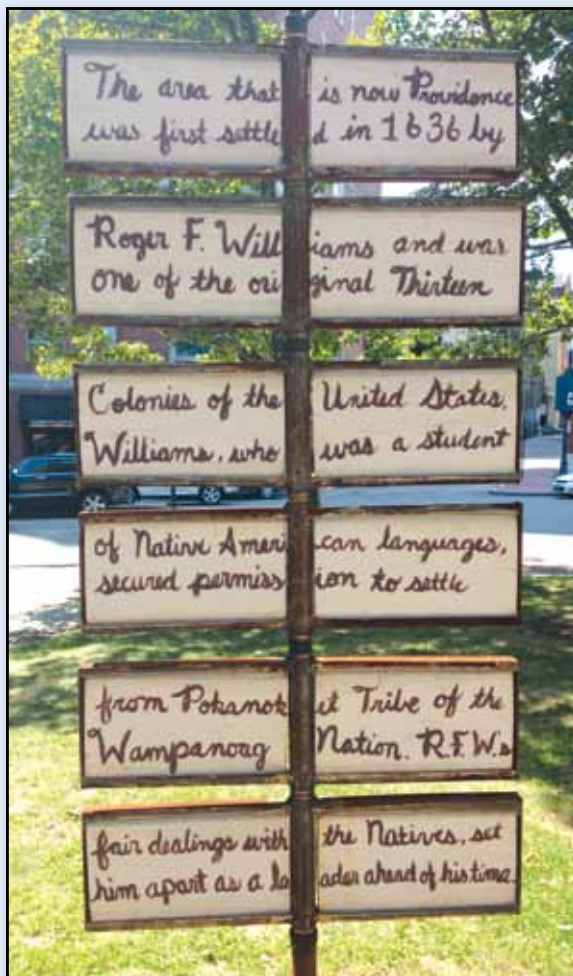 The area that is now Providence
was first settled in 1636 by
Roger F. Williams and was
one of the original Thirteen
Colonies of the United States.
Williams, who was a student
of Native American languages,
secured permission to settle
from Pokanoket Tribe of the
Wampanoag Nation. R.F.W.s
fair dealings with the Natives, set
him apart as a leader ahead of his time.